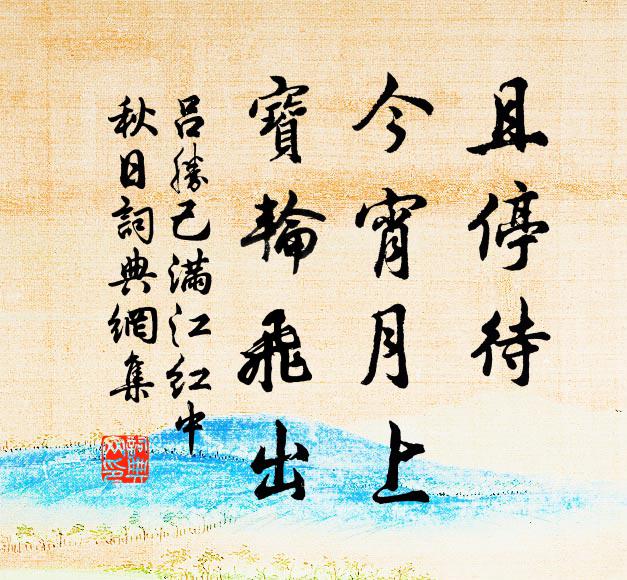 且停待
今宵月上
寶輪飛出
呂勝己滿江紅中
秋日詞典網集